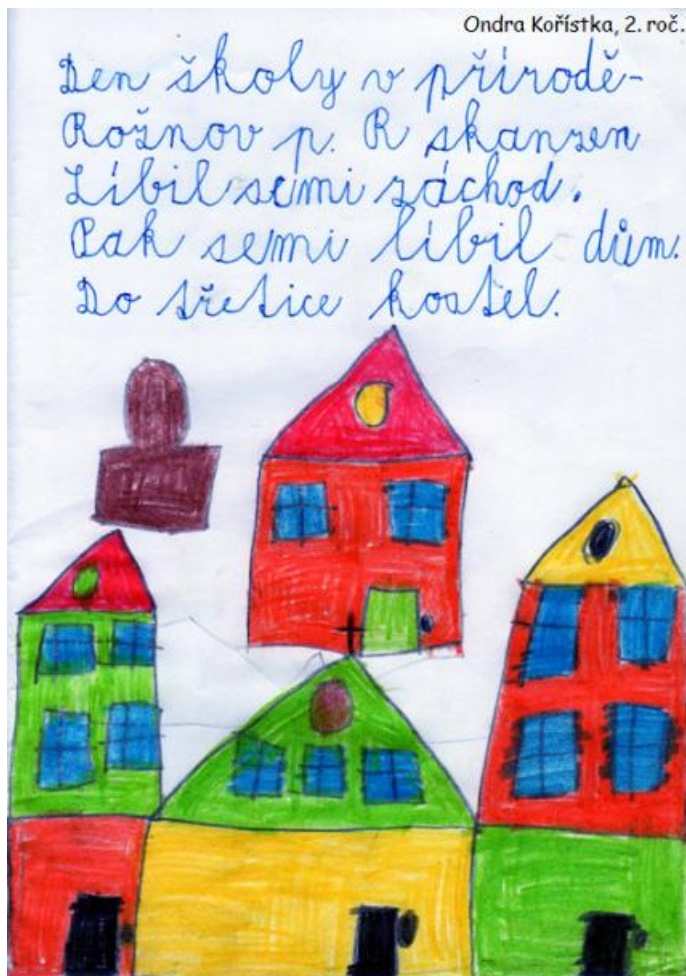 Ondra Kořístka, 2. roč.
Den školy v přírodě-
Rožnov p. R skanzen
Líbil semi záchod.
Pak semi líbil dům.
Do třetice kostel.